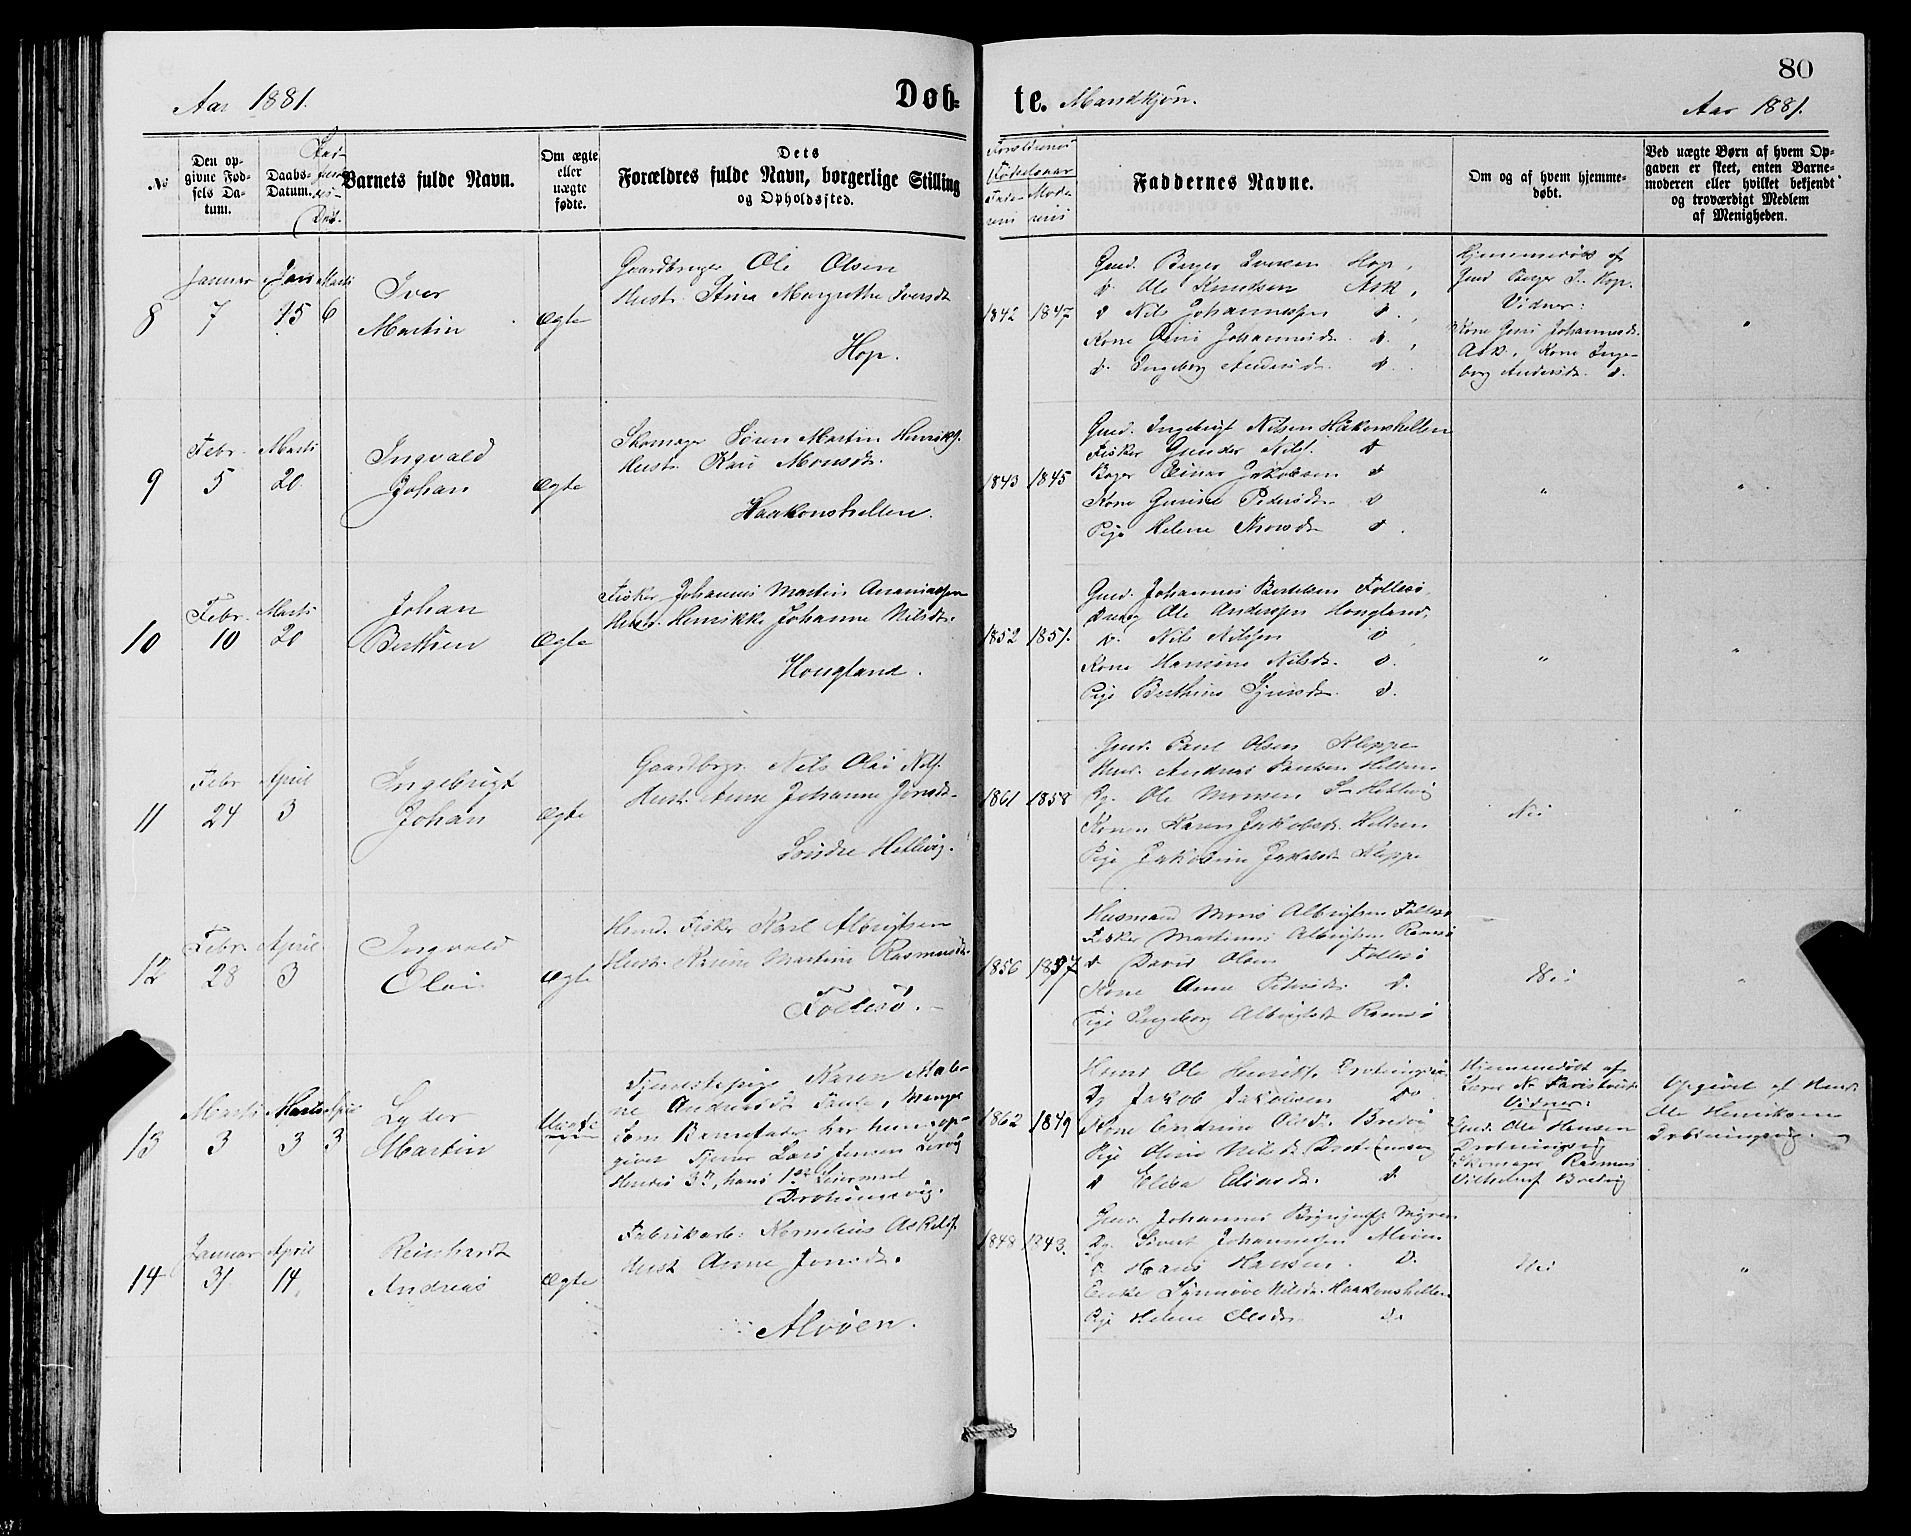 80
Aar 1881.
Døb-
te. Mandkjøn.
Aar 1881.
No
Den op-
givne Fød-
sels Da-
tum.
Daabs-
Datum.
Barnets fulde Navn.
Om ægte
eller
uægte
fødte.
Dets
Forældres fulde Navn, borgerlige Stilling
og Opholdssted.
Forældrenes
Fødselsaar
Fade- Mode-
rens rens
Faddernes Navne.
Om og af hvem hjemme-
døbt.
Ved uægte Børn af hvem Op-
gaven er skeet, enten Barne-
moderen eller hvilket bekjendt
og troværdigt Medlem
af Menigheden.
8
Januar
7
15
Marts
6
Iver
Martin
Ægte
Gaardbruger Ole Olsen
Hust. Stina Margrethe Iversdt.
Hop.
1842 1847
Gmd. Berger Iversen Hop,
d. Ole Knudsen Ask,
d Nils Johannessen d.
Kone Johannesdt. d.
d. Ingeborg Andersdt. d.
Hjemmedøbt af
Gmd Berger I. Hop.
Vidner:
Kone Johannesdt.
Ask, Kone Inge-
borg Andersdt. d.
"
9
Febr.
5
Marts
20
Ingvald
Johan
Ægte
Skomager Søren Martin Henriks.
Hust. Kari Monsdt.
Haakonshellen.
1843 1845
Gmd. Ingebrigt Nilsen Håkonshellen
Fisker Gunder Nils. d
Einar Jakobsen d
Kone Gurine Pedersdt. d
Pige Helene d.
"
"
10
Febr.
10
Marts
20
Johan
Berthin
Ægte
Fisker Johannes Martin Ananiassen
Hust. Henrikke Johanne Nilsdt.
Hougland.
1852 1851.
Gmd. Johannes Bertelsen Follesø,
Dreng Ole Anderssen Hougland,
d. Nils Nilssen d
Kone Hansine Nilsdt. d.
Pige Berthine d.
"
"
11
Febr
24
April
3
Ingebrigt
Johan
Ægte
Gaardbrgr. Nils Olai Nils.
Hust. Anne Johanne Jonsdt.
Søndre Hetlevig.
1861 1858
Gmd. Paul Olsen Kleppe
Andreas Paulsen
Ole Monsen S. Hetlevig
Karen Jakobsdt.
Pige Jakobine Jakobsdt Kleppe
Nei
"
12
Febr.
28
April
3
Ingvald
Olai
Ægte
Hmd. Fisker Karl Albrigtsen
Hust. Martine Rasmusdt.
Follesø.
1856 1857
Husmand Mons Albrigtsen Follesø
Fisker Martinus Albrigtsen Ramsø
d David Olsen Follesø
Kone Anne d.
Pige Ingeborg Albrigtsdt Ramsø
Nei
"
13
Marts
3
Marts
3
April
3
Lyder
Martin
Uægte
Tjenestepige Karen Male-
ne Andersdt.
som Barnefader har hun op-
givet Tjener Lars Jensen
Hendes 3die, hans 1ste Leiermaal
Drotningsvig.
1862 1849
Hmd Ole Henriks. Drotningsvig
Dg Jakob Jakobsen Do
Kone Andrine Olsdt. Bredvig
Pige Oline Nilsdt. Drotningsvig
d Elisa Eliasdt. d
Hjemmedøbt af
Vidner:
Gmd. Ole Hansen
Drotningsvig
Skomager Rasmus
Vilhelmsen Bredvig
Opgivet af Hmd.
Ole Henriksen
Drotningsvig.
14
Januar
31
April
14.
Reinhardt
Andreas
Ægte
Fabrikarb. Kornelius Askels.
Hust Anne Jonsdt.
Alvøen.
1848 1843.
Gmd. Johannes Myren
Dg. Sivert Johannessen Alvøen
d. Hans Hansen. D.
Enke Synnøve Nilsdt. Haakonshellen
Pige Helene Olsdt. do
Nei
"